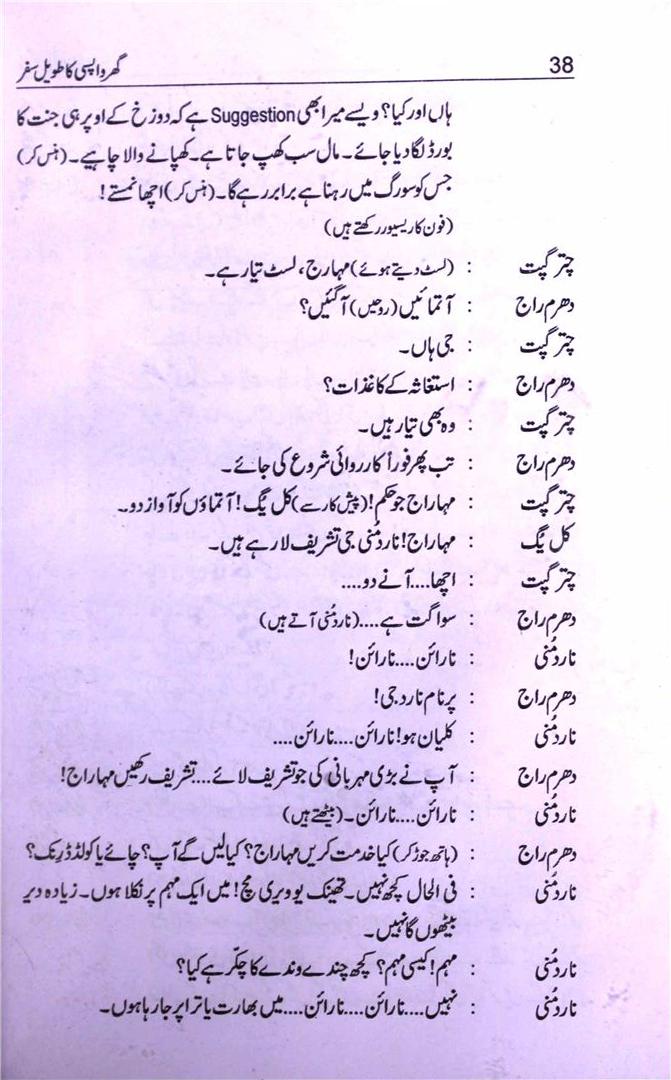 38 گھر واپسی کا طویل سفر
ہاں اور کیا؟ ویسے میرا بھی Suggestion ہے کہ دوزخ کے اوپر ہی جنت کا
بورڈ لگا دیا جائے۔ مال سب کھپ جاتا ہے۔ کھپانے والا چاہیے۔ (ہنس کر)
جس کو سورگ میں رہنا ہے برابر رہے گا۔ (ہنس کر) اچھا نمستے!
(فون کا ریسیور رکھتے ہیں)
چتر گپت : (لسٹ دیتے ہوئے) مہاراج، لسٹ تیار ہے۔
دھرم راج : آتمائیں (روحیں) آ گئیں؟
چتر گپت : جی ہاں۔
دھرم راج : استغاثہ کے کاغذات؟
چتر گپت : وہ بھی تیار ہیں۔
دھرم راج : تب پھر فوراً کارروائی شروع کی جائے۔
چتر گپت : مہاراج جو حکم! (پیش کار سے) کل یگ! آتماؤں کو آواز دو۔
کل یگ : مہاراج! نارد مُنی جی تشریف لا رہے ہیں۔
چتر گپت : اچھا.... آنے دو....
دھرم راج : سواگت ہے.... (نارد مُنی آتے ہیں)
نارد مُنی : نارائن.... نارائن!
دھرم راج : پرنام نارد جی!
نارد مُنی : کلیان ہو! نارائن.... نارائن....
دھرم راج : آپ نے بڑی مہربانی کی جو تشریف لائے.... تشریف رکھیں مہاراج!
نارد مُنی : نارائن.... نارائن۔ (بیٹھتے ہیں)
دھرم راج : (ہاتھ جوڑ کر) کیا خدمت کریں مہاراج؟ کیا لیں گے آپ؟ چائے یا کولڈ ڈرنک؟
نارد مُنی : فی الحال کچھ نہیں۔ تھینک یو ویری مچ! میں ایک مہم پر نکلا ہوں۔ زیادہ دیر
بیٹھوں گا نہیں۔
نارد مُنی : مہم! کیسی مہم؟ کچھ چندے وندے کا چکّر ہے کیا؟
نارد مُنی : نہیں.... نارائن.... نارائن.... میں بھارت یاترا پر جا رہا ہوں۔